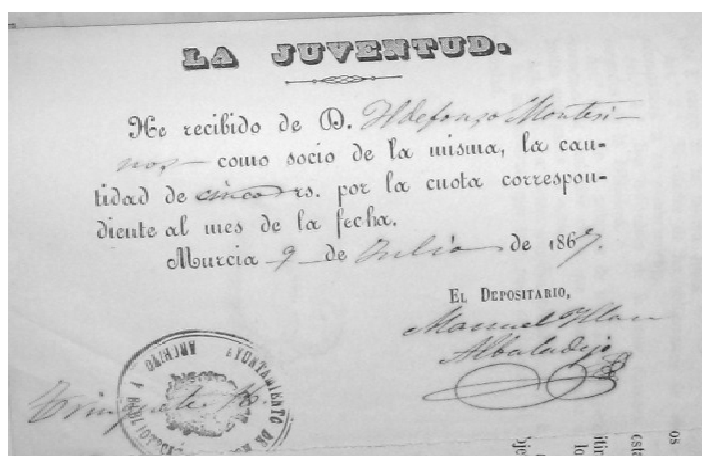 LA JUVENTUD.
He recibido de D. Ildefonso Montesi-
nos como socio de la misma, la can-
tidad de cinco rs. por la cuota correspon-
diente al mes de la fecha.
Murcia 9 de Julio de 1867.
EL DEPOSITARIO,
Manuel
Albaladejo
AYUNTAMIENTO DE
ARCHIVO